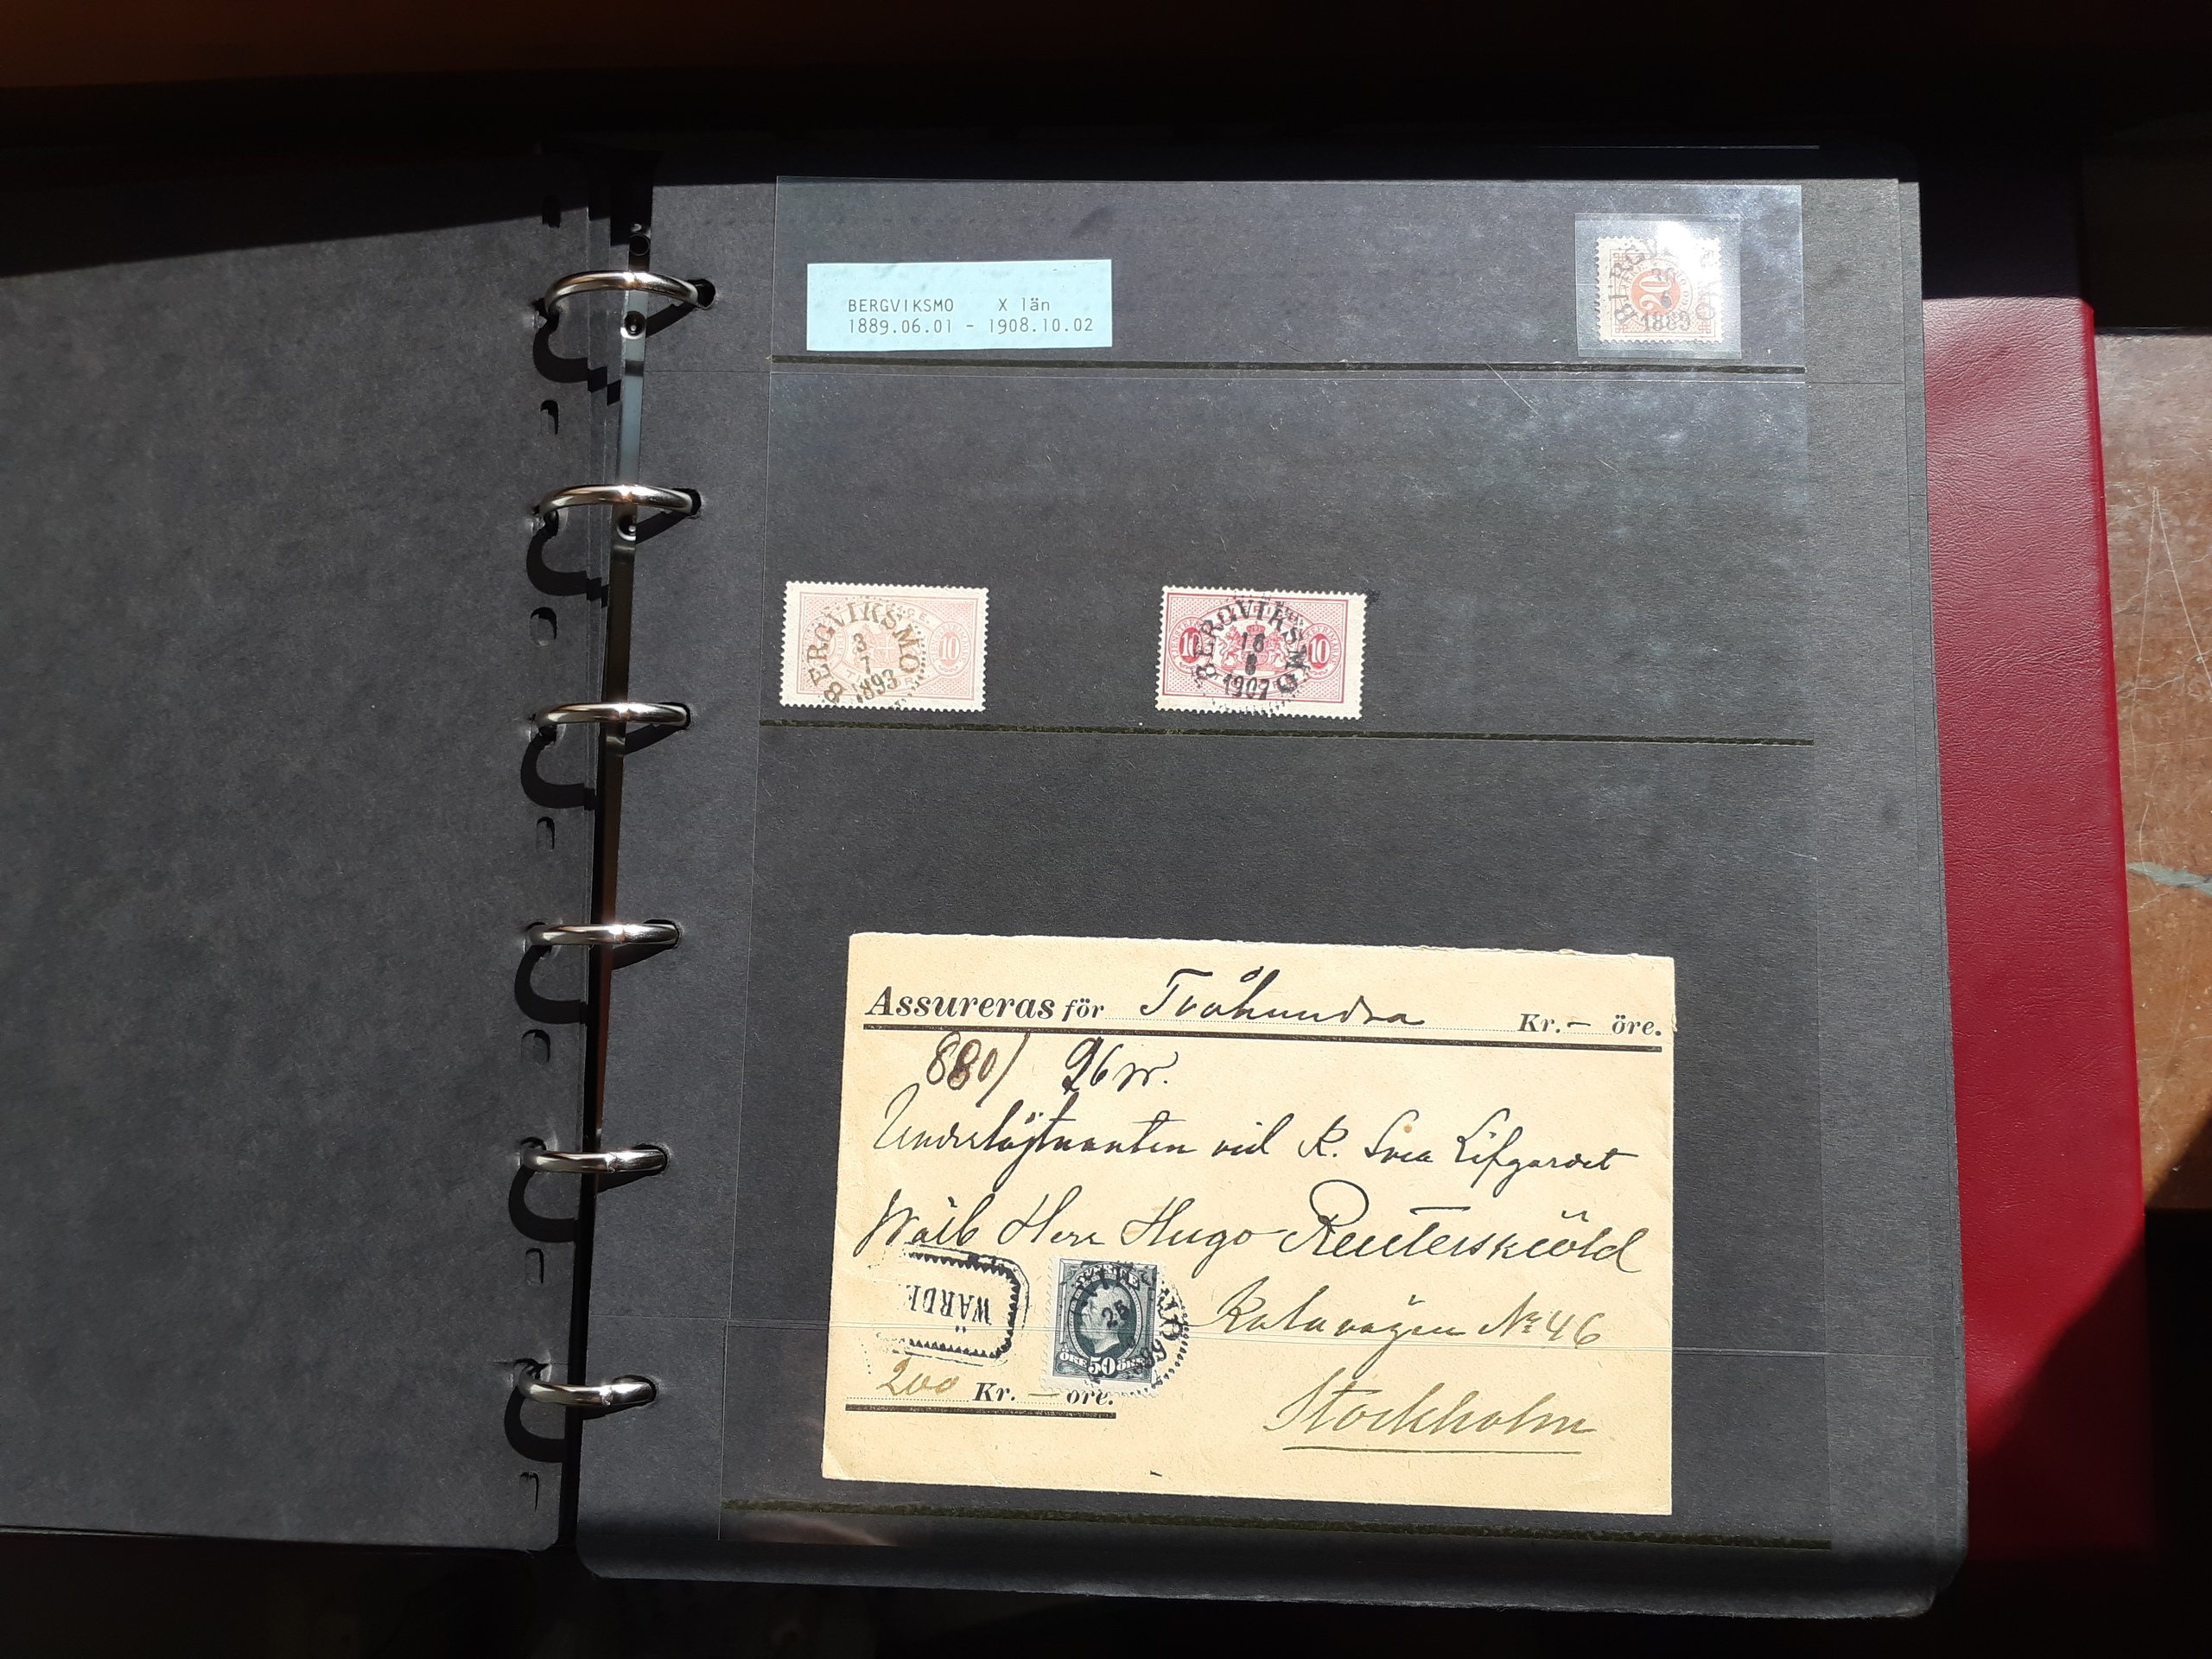 BERGVIKSMO X län
1889.06.01 - 1908.10.02
20
1889
BERGVIKSMO
3
7
1893
10
BERGVIKSMO
18
8
1907
10
10
Assureras för Tvåhundra Kr. — öre.
880/ 96 gr.
Underlöjtnanten vid K. Svea Lifgardet
Wälb Herr Hugo Reuterskiöld
WÄRDE
25
ÖRE 50 ÖRE
No 46
200 Kr. — öre.
Stockholm